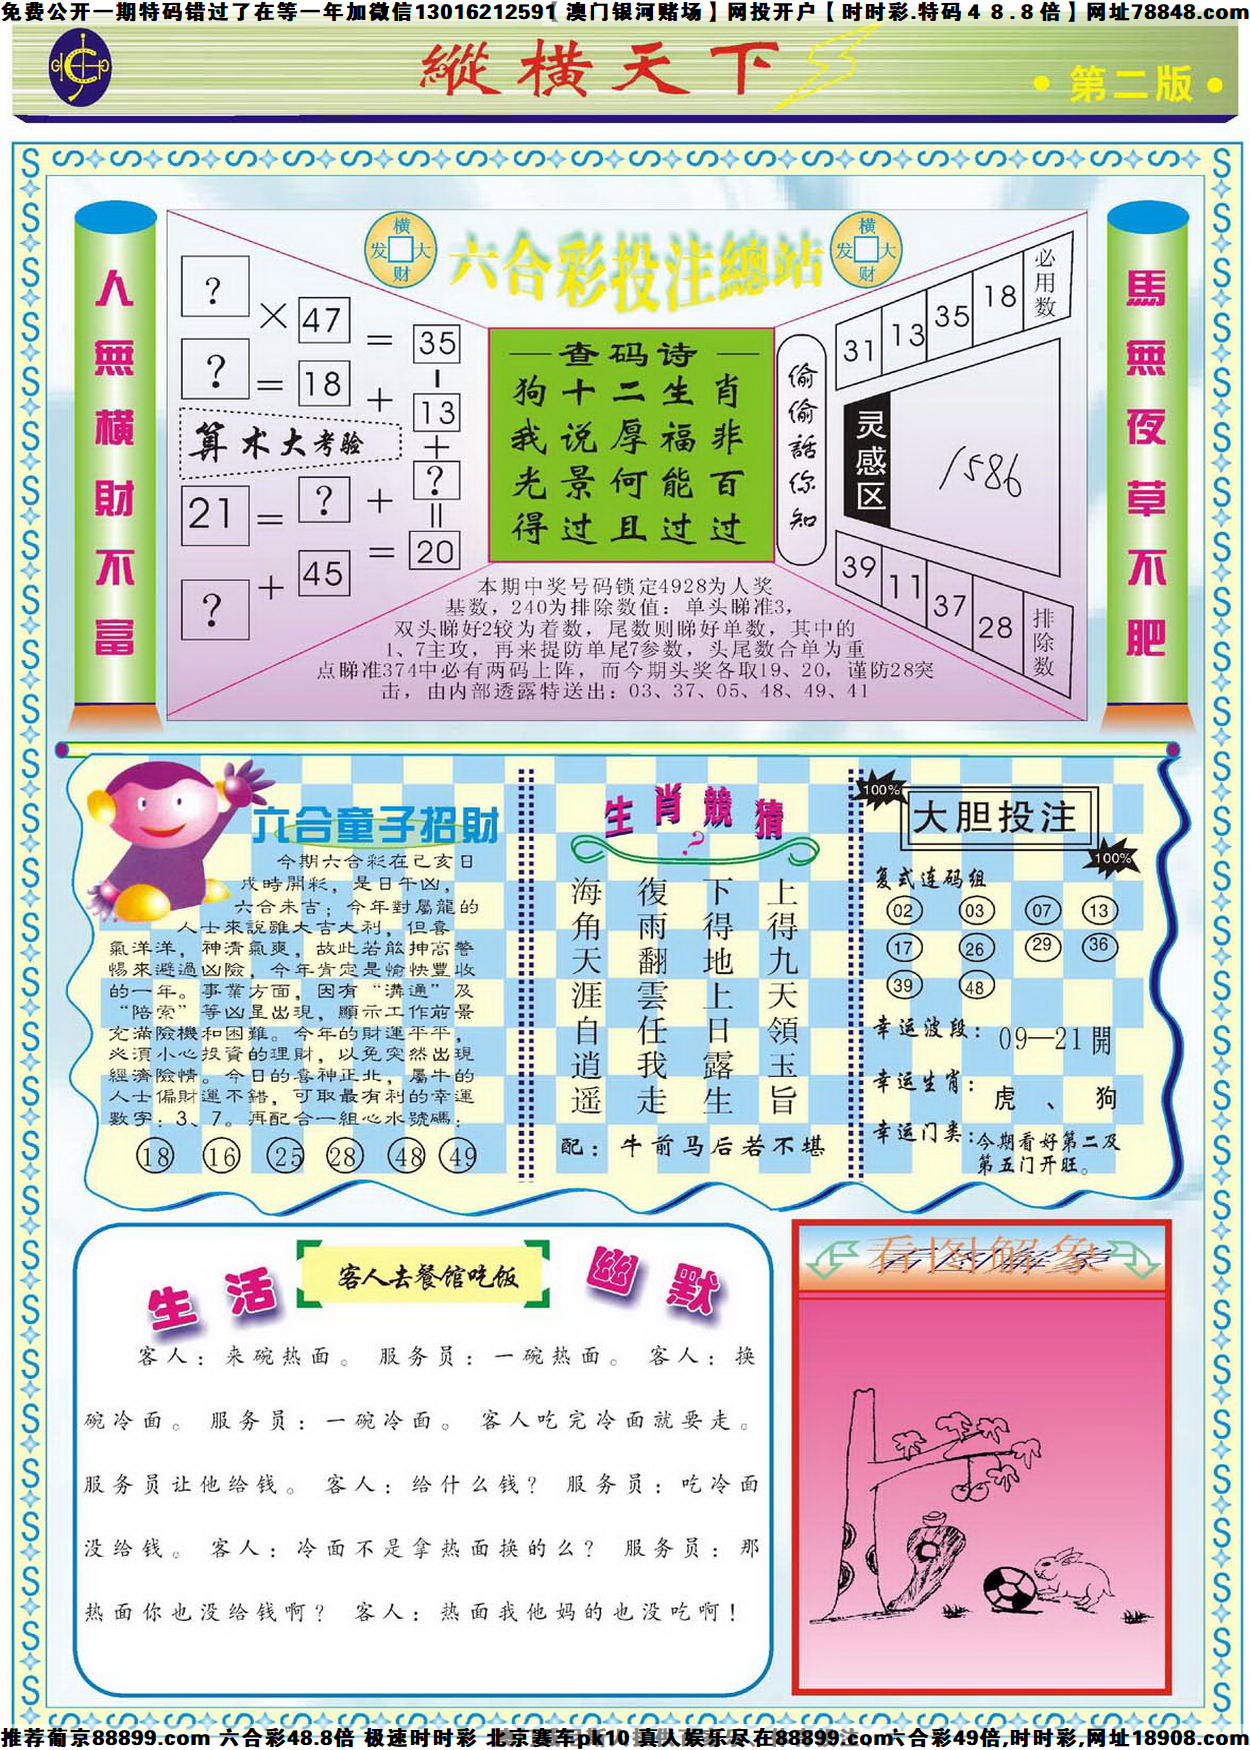 免费公开一期特码错过了在等一年加微信13016212591【澳门银河赌场】网投开户【时时彩.特码48.8倍】网址78848.com
縱橫天下
·第二版·
人無橫財不富
馬無夜草不肥
横大财发
六合彩投注總站
横大财发
? × 47 = 35
? = 18 + 13
算术大考验
21 = ? + ?
? + 45 = 20
查码诗
狗十二生肖
我说厚福非
光景何能百
得过且过过
偷偷話你知
31 13 35 18 必用数
灵感区
1586
39 11 37 28 排除数
本期中奖号码锁定4928为人奖
基数，240为排除数值：单头睇准3，
双头睇好2较为着数，尾数则睇好单数，其中的
1、7主攻，再来提防单尾7参数，头尾数合单为重
点睇准374中必有两码上阵，而今期头奖各取19、20，谨防28突
击，由内部透露特送出：03、37、05、48、49、41
六合童子招財
今期六合彩在己亥日
戌時開彩，是日午凶，
六合未吉；今年對屬龍的
人士來說雖大吉大利，但喜
氣洋洋，神清氣爽，故此若能抻高警
惕來避過凶險，今年肯定是愉快豐收
的一年。事業方面，因有“溝通”及
“陪索”等凶星出現，顯示工作前景
充滿險機和困難。今年的財運平平，
必須小心投資的理財，以免突然出現
經濟險情。今日的喜神正北，屬牛的
人士偏財運不錯，可取最有利的幸運
數字：3、7。再配合一組心水號碼：
18 16 25 28 48 49
生肖競猜
?
上得九天領玉旨
下得地上日露生
復雨翻雲任我走
海角天涯自逍遥
配：牛前马后若不堪
100%
大胆投注
100%
复式连码组
02 03 07 13
17 26 29 36
39 48
幸运波段：09—21開
幸运生肖：虎、狗
幸运门类：今期看好第二及
第五门开旺。
生活
客人去餐馆吃饭
幽默
客人：来碗热面。 服务员：一碗热面。 客人：换
碗冷面。 服务员：一碗冷面。 客人吃完冷面就要走。
服务员让他给钱。 客人：给什么钱？ 服务员：吃冷面
没给钱。 客人：冷面不是拿热面换的么？ 服务员：那
热面你也没给钱啊？ 客人：热面我他妈的也没吃啊！
看图解象
推荐葡京88899.com 六合彩48.8倍 极速时时彩 北京赛车pk10 真人娱乐尽在88899.com 六合彩49倍,时时彩,网址18908.com